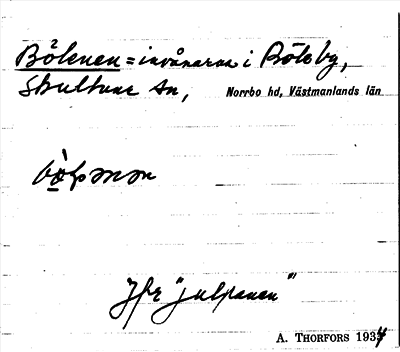 Bölenen = invånarna i Böleby,
Skultuna sn, Norrbo hd, Västmanlands län
Jfr "julpanen"
A. THORFORS 1934